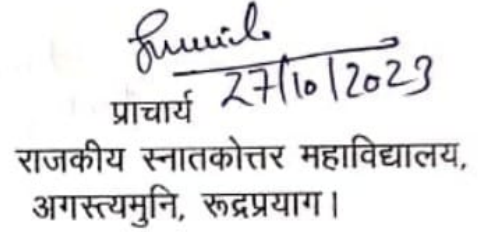 27/10/2023
प्राचार्य
राजकीय स्नातकोत्तर महाविद्यालय,
अगस्त्यमुनि, रूद्रप्रयाग।